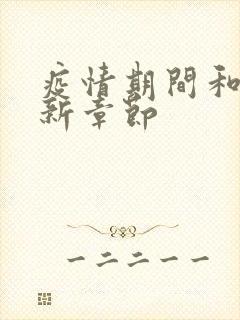 疫情期間和
新章節
一二二一一